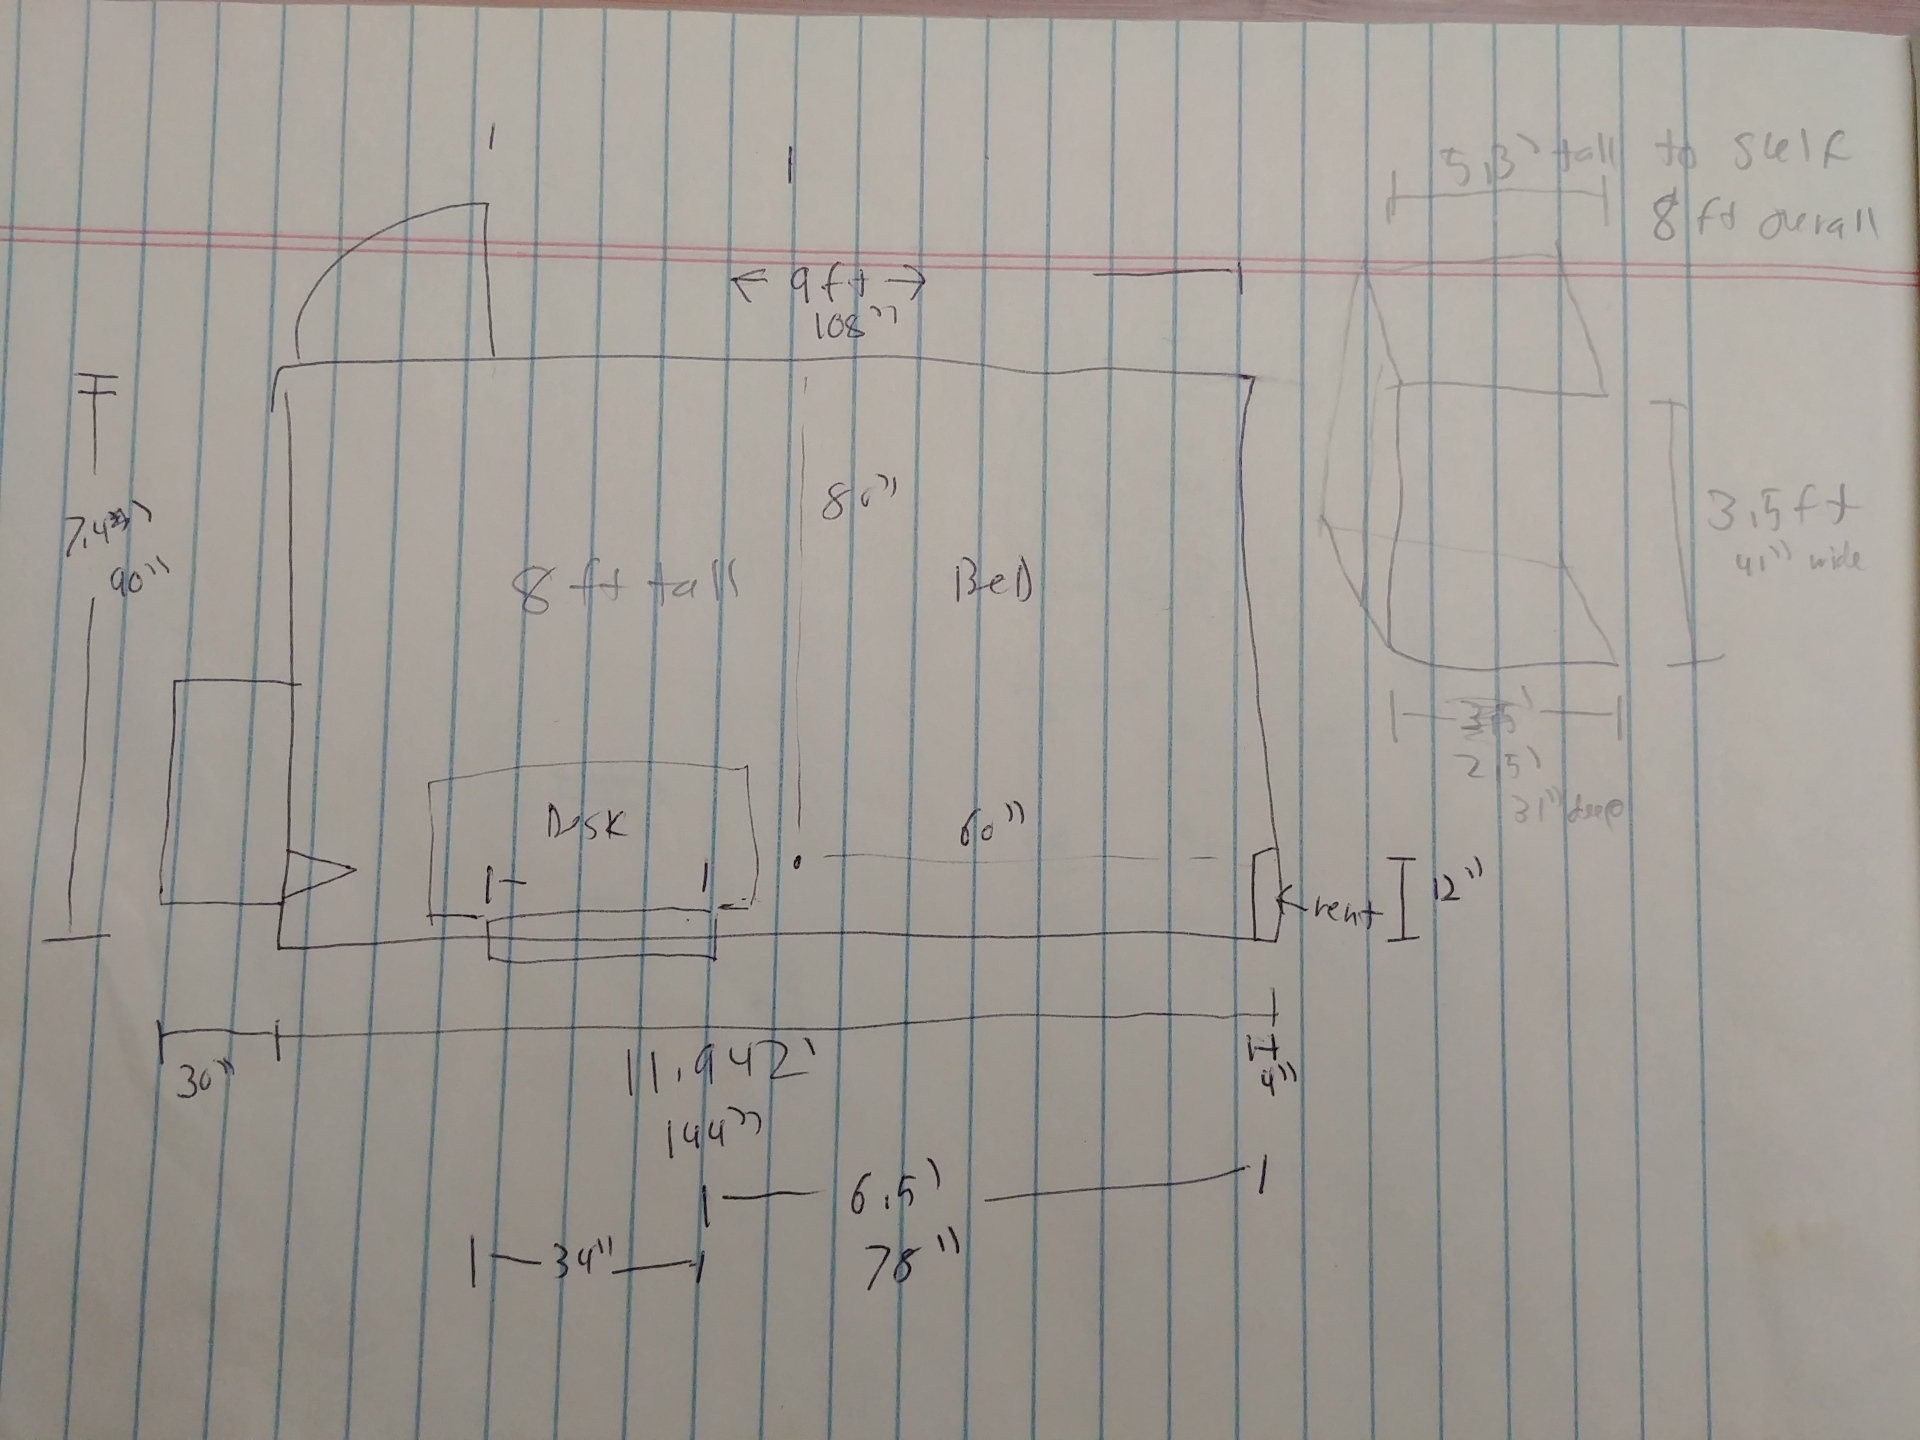 5.3' tall to shelf
8 ft overall
← 9ft →
108"
7.4'
90"
80"
8 ft tall
BeD
3.5ft
41" wide
2.5'
31" deep
Desk
60"
← vent
12"
30"
11.942'
144"
4"
6.5'
78"
34"